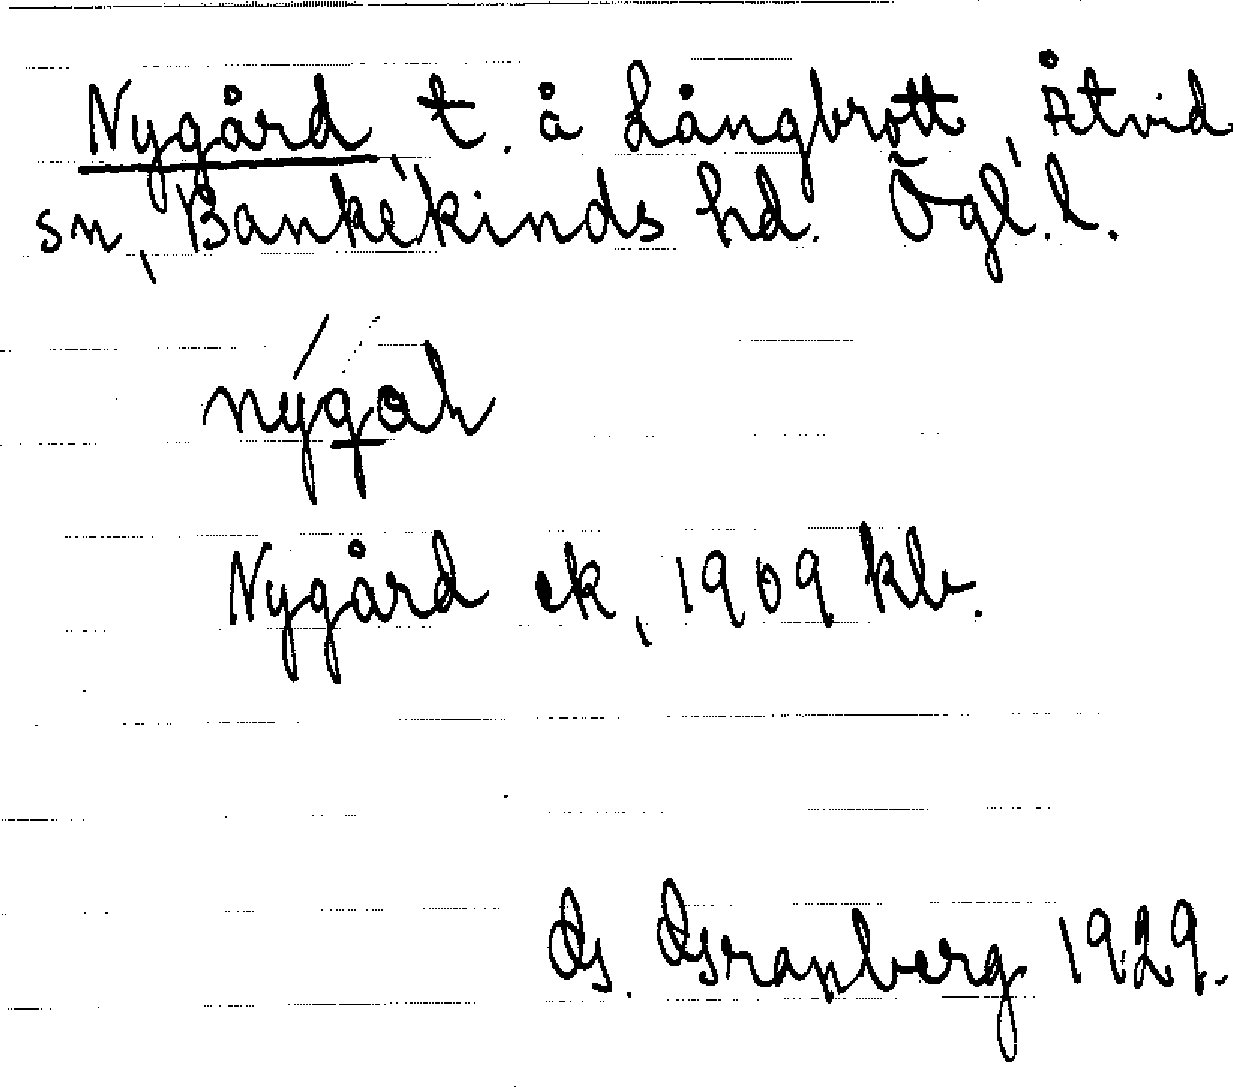 Nygård t. å Långbrott, Åtvid
sn, Bankekinds hd. Ögl. l.
Nygård ek, 1909 klv.
G. Granberg 1929.